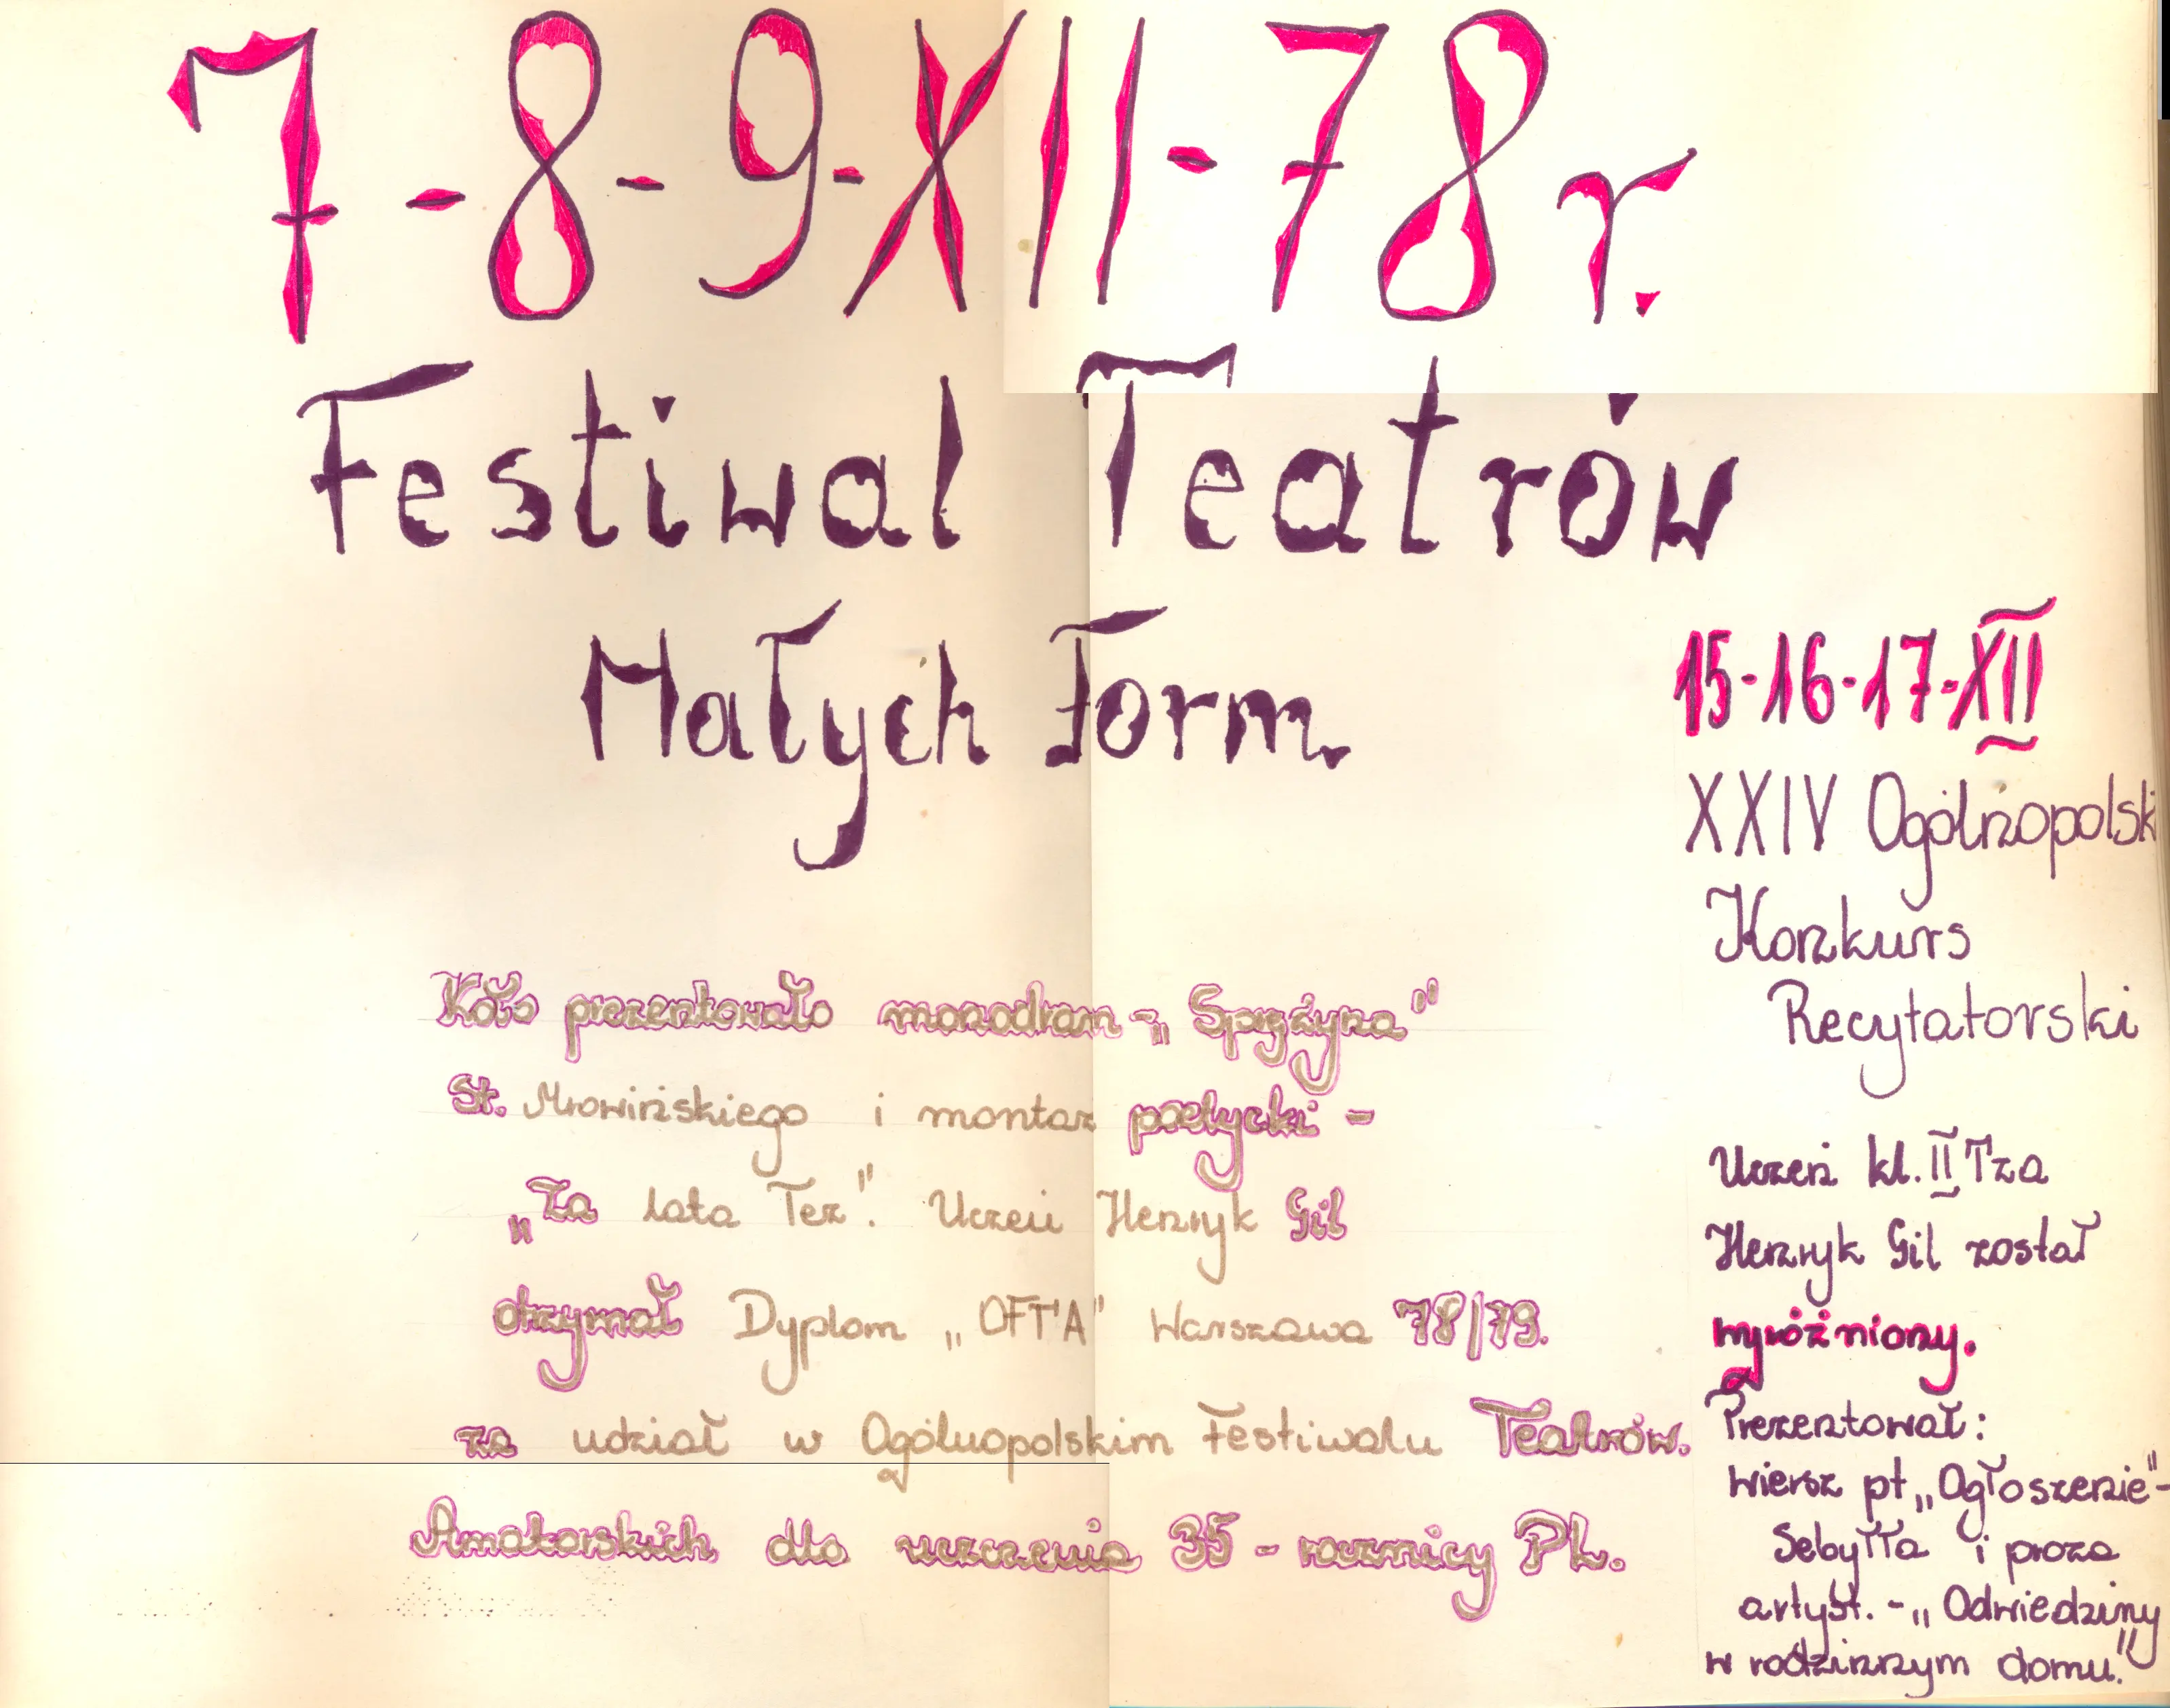 7-8-9-XII-78r.
Festiwal Teatrów
Małych Form.
Koło prezentowało monodram - „Sprężyna"
St. Mrowińskiego i montaz poetycki -
„Za lata Też". Uczeń Henryk Gil
otrzymał Dyplom „OFTA" Warszawa 78/79.
za udział w Ogólnopolskim Festiwalu Teatrów.
Amatorskich dla uczczenia 35 - rocznicy PL.
15-16-17-XII
XXIV Ogólnopolski
Konkurs
Recytatorski
Uczeń kl. II Tza
Henryk Gil został
wyróżniony.
Prezentował:
wiersz pt „Ogłoszenie"-
Sebyłła i proza
artyst. - „Odwiedziny
w rodzinnym domu."